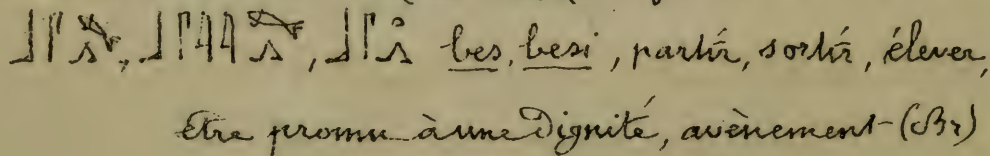 bes, besi, partir, sortir, élever,
être promu à une dignité, avènement (Br)